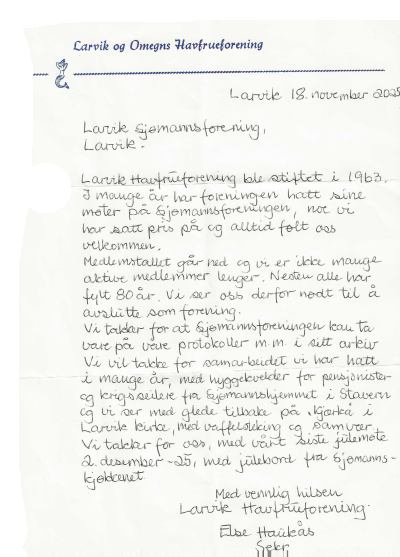 Larvik og Omegns Havfrueforening
Larvik 18. november 2025
Larvik Sjømannsforening,
Larvik.
Larvik Havfrueforening ble stiftet i 1963.
I mange år har foreningen hatt sine
møter på Sjømannsforeningen, noe vi
har satt pris på og alltid følt oss
velkommen.
Medlemstallet går ned og vi er ikke mange
aktive medlemmer lenger. Nesten alle har
fylt 80 år. Vi ser oss derfor nødt til å
avslutte som forening.
Vi takker for at Sjømannsforeningen kan ta
vare på våre protokoller m.m i sitt arkiv
Vi vil takke for samarbeidet vi har hatt
i mange år, med hyggekvelder for pensjonister
og krigsseilere fra Sjømannshjemmet i Stavern
og vi ser med glede tilbake på "Kjærka i
Larvik kirke, med vaffelsteking og samvær.
Vi takker for oss, med vårt siste julemøte
2. desember -25, med julebord fra Sjømanns-
kjøkkenet.
Med vennlig hilsen
Larvik Havfrueforening.
Else Haukås
Sekr.